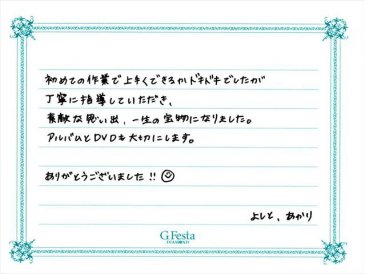 初めての作業で上手くできるかドキドキでしたが
丁寧に指導していただき、
素敵な思い出、一生の宝物になりました。
アルバムとDVDも大切にします。
ありがとうございました!!☺
よしと、あかり
G.Festa
DIAMOND